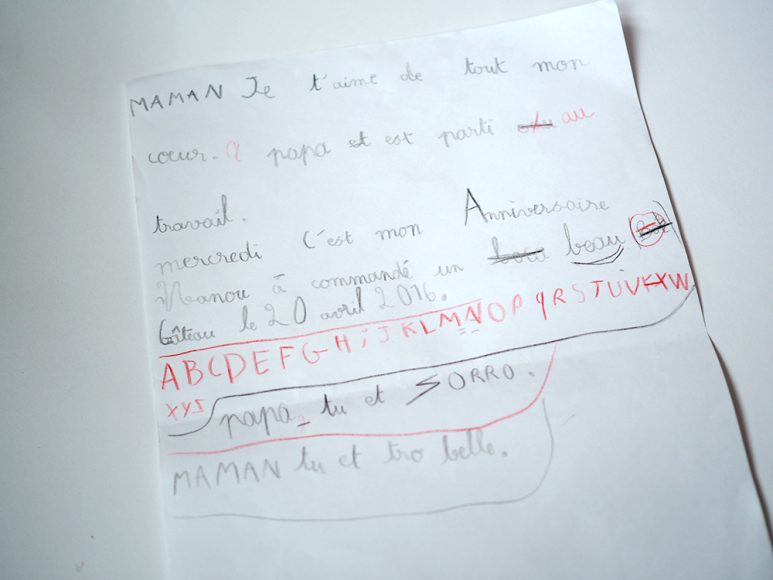 MAMAN Je t'aime de tout mon
coeur. papa et est parti au
travail.
mercredi c'est mon Anniversaire
Nanou à commandé un beau
Gâteau le 20 avril 2016.
ABCDEFGHiJKLMNOPqRSTUVXW
XYS
papa tu et SORRO.
MAMAN tu et tro belle.